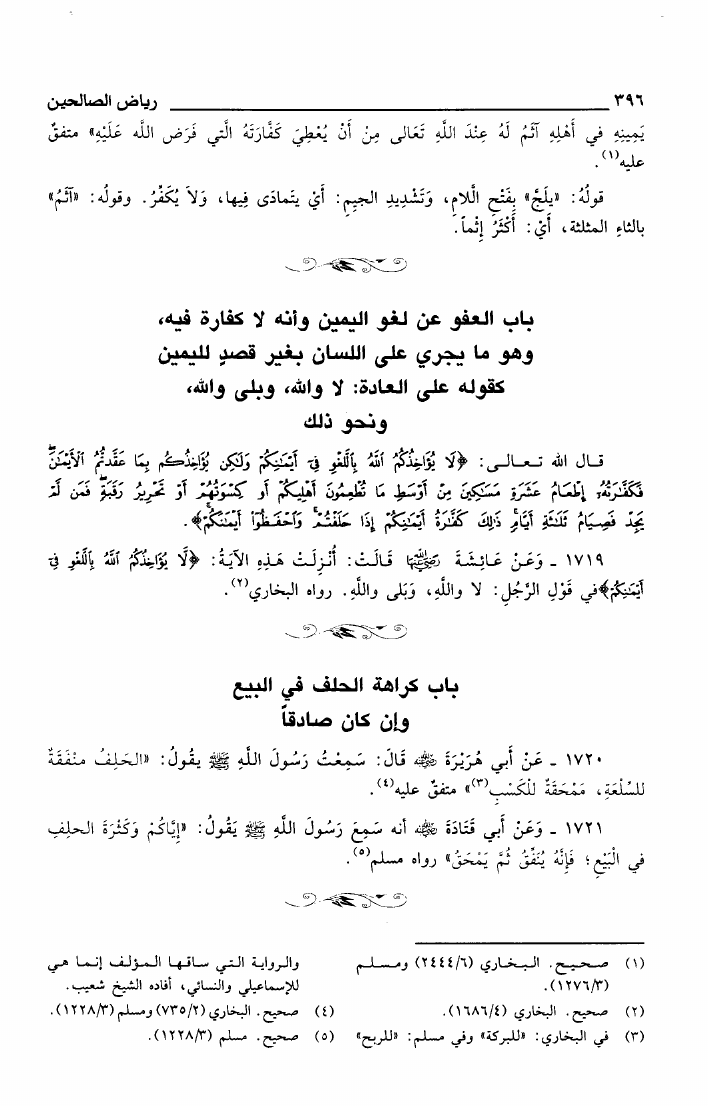 ٣٩٦ رياض الصالحين
يَمِينِهِ في أَهْلِهِ آثَمُ لَهُ عِنْدَ اللَّهِ تَعَالى مِنْ أَنْ يُعْطِيَ كَفَّارَتَهُ الَّتي فَرَض اللَّه عَلَيْهِ» متفقٌ
عليه(١).
قولُهُ: «يلَجَّ» بِفَتْحِ الَّلامِ، وَتَشْدِيدِ الجيمِ: أَيْ يَتَمادَى فِيها، وَلاَ يُكَفِّرُ. وقوله: «آثَمُ»
بالثاءِ المثلثة، أَيْ: أَكْثَرُ إِثْماً.
باب العفو عن لغو اليمين وأنه لا كفارة فيه،
وهو ما يجري على اللسان بغير قصدٍ لليمين
كقوله على العادة: لا والله، وبلى والله،
ونحو ذلك
قـال الله تـعـالـى: ﴿لَا يُؤَاخِذُكُمُ ٱللَّهُ بِٱللَّغْوِ فِىٓ أَيْمَـٰنِكُمْ وَلَـٰكِن يُؤَاخِذُكُم بِمَا عَقَّدتُّمُ ٱلْأَيْمَـٰنَۖ
فَكَفَّـٰرَتُهُۥٓ إِطْعَامُ عَشَرَةِ مَسَـٰكِينَ مِنْ أَوْسَطِ مَا تُطْعِمُونَ أَهْلِيكُمْ أَوْ كِسْوَتُهُمْ أَوْ تَحْرِيرُ رَقَبَةٍۖ فَمَن لَّمْ
يَجِدْ فَصِيَامُ ثَلَـٰثَةِ أَيَّامٍۚ ذَٰلِكَ كَفَّـٰرَةُ أَيْمَـٰنِكُمْ إِذَا حَلَفْتُمْۚ وَٱحْفَظُوٓا۟ أَيْمَـٰنَكُمْۚ﴾.
١٧١٩ ـ وَعَـنْ عَـائِـشَـةَ رضي الله عنها قَـالَـتْ: أُنْـزِلَـتْ هَـذِهِ الآيَـةُ: ﴿لَّا يُؤَاخِذُكُمُ ٱللَّهُ بِٱللَّغْوِ فِىٓ
أَيْمَـٰنِكُمْ﴾في قَوْلِ الرَّجُلِ: لا واللَّهِ، وَبَلى واللَّهِ. رواه البخاري(٢).
باب كراهة الحلف في البيع
وإن كان صادقاً
١٧٢٠ ـ عَنْ أَبي هُرَيْرَةَ رضي الله عنه قَالَ: سَمِعْتُ رَسُولَ اللَّهِ ﷺ يقُولُ: «الحَلِفُ منْفَقَةٌ
للسِّلْعَةِ، مَمْحَقَةٌ للْكَسْبِ(٣)» متفقٌ عليه(٤).
١٧٢١ ـ وَعَنْ أَبي قَتَادَةَ رضي الله عنه أنه سَمِعَ رَسُولَ اللَّهِ ﷺ يَقُولُ: «إِيَّاكُمْ وَكَثْرَةَ الحلِفِ
في الْبَيْعِ؛ فَإِنَّهُ يُنَفِّقُ ثُمَّ يَمْحَقُ» رواه مسلم(٥).
(١) صـحـيـح. الـبـخـاري (٢٤٤٤/٦) ومـسـلـم
(١٢٧٦/٣).
(٢) صحيح. البخاري (١٦٨٦/٤).
(٣) في البخاري: «للبركة» وفي مسلم: «للربح»
والـروايـة الـتـي سـاقـهـا الـمـؤلـف إنـمـا هـي
للإسماعيلي والنسائي، أفاده الشيخ شعيب.
(٤) صحيح. البخاري (٧٣٥/٢) ومسلم (١٢٢٨/٣).
(٥) صحيح. مسلم (١٢٢٨/٣).